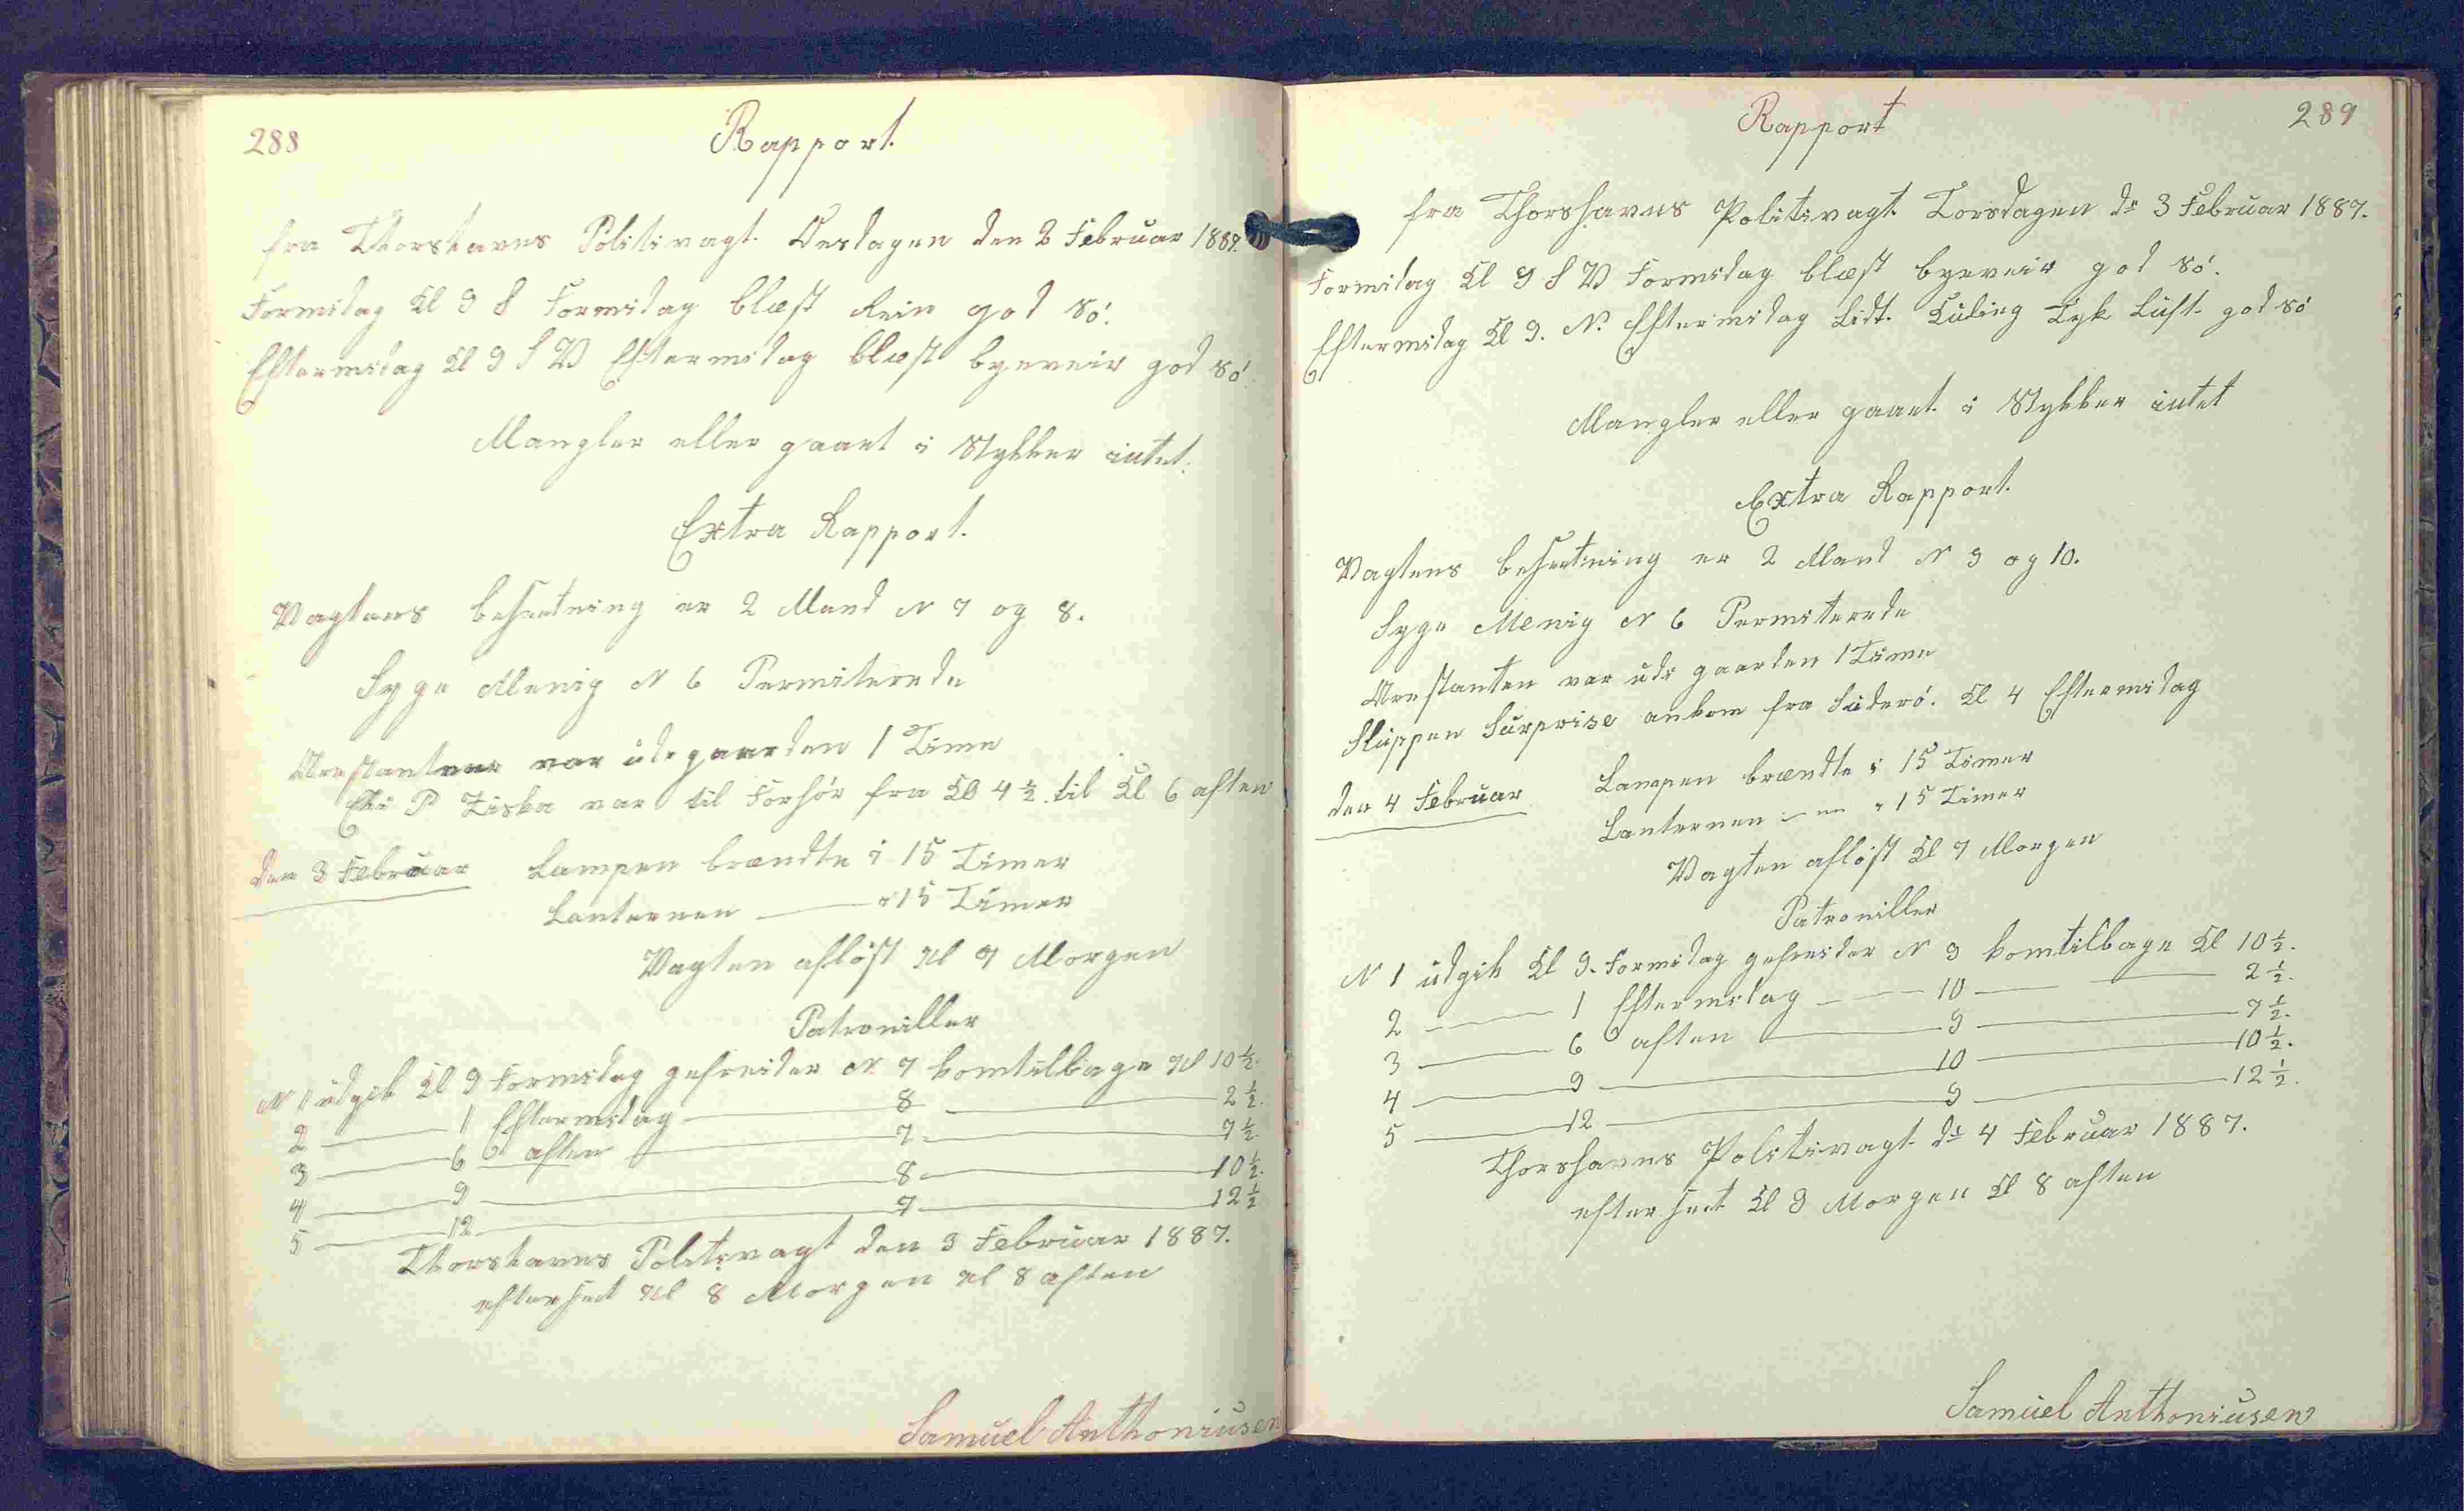 288
Rapport.
fra Thorshavns Politivagt. Onsdagen den 2 Februar 1887.
Formidag Kl 9 S Formidag blæst Rein god Sö.
Eftermidag Kl 9 S W Eftermidag blæst byeveir god Sö.
Mangler eller gaaet i Stykker intet.
Extra Rapport.
Vagtens besætning er 2 Mand N 7 og 8.
Syge Menig N 6 Permiterede
Arrestanten var ude gaarden 1 Time
P Ziska var til Forhör fra Kl 4 ½ til Kl 6 aften
den 3 Februar Lampen brændte i 15 Timer
Lanternen — " 15 Timer
Vagten aflöst Kl 7 Morgen
Patroniller
N 1 udgik Kl 9 Formidag gefreider N 7 komtilbage Kl 10 ½.
2 — 1 Eftermidag — 8 — 2 ½.
3 — 6 aften — 7 — 7 ½.
4 — 9 — 8 — 10 ½.
5 — 12 — 7 — 12 ½
Thorshavns Politivagt den 3 Februar 1887.
efterseet Kl 8 Morgen Kl 8 aften
Samuel Anthoniusen
Rapport
289
fra Thorshavns Politivagt. Torsdagen dn 3 Februar 1887.
Formidag Kl 9 S W Formidag blæst byeveir god Sö.
Eftermidag Kl 9. N. Eftermidag Lidt. Kuling Tyk Luft. god Sö
Mangler eller gaaet i Stykker intet
Extra Rapport.
Vagtens besætning er 2 Mand N 9 og 10.
Syge Menig N 6 Permiterede
Arrestanten var ude gaarden 1 Time
Sluppen Surprise ankom fra Suderö. Kl 4 Eftermidag
den 4 Februar Lampen brændte i 15 Timer
Lanternen — " 15 Timer
Vagten aflöst Kl 7 Morgen
Patroniller
N 1 udgik Kl 9. Formidag gefreider N 9 komtilbage Kl 10 ½.
2 — 1 Eftermidag — 10 — 2 ½.
3 — 6 aften — 9 — 7 ½.
4 — 9 — 10 — 10 ½.
5 — 12 — 9 — 12 ½.
Thorshavns Politivagt dn 4 Februar 1887.
efterseet Kl 9 Morgen Kl 8 aften
Samuel Anthoniusen